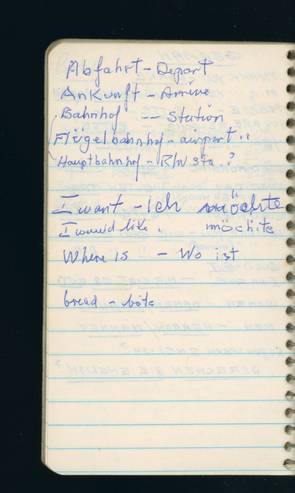 Abfahrt - Depart
Ankunft - Arrive
Bahnhof -- Station
Flügelbahnhof - airport ..
Hauptbahnhof - R/W Sta. ?
I want - Ich möchte
I would like . möchite
Where is - Wo ist
bread -böte